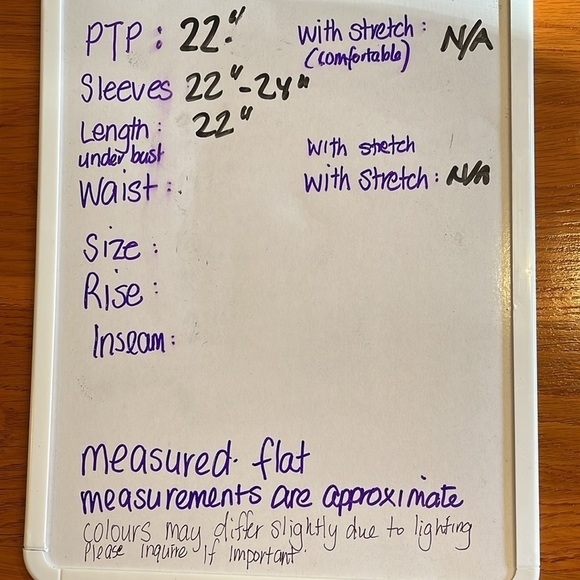 PTP: 22." With stretch: N/A
(comfortable)
Sleeves 22"-24"
Length: 22"
under bust With stretch
Waist: With Stretch: N/A
Size:
Rise:
Inseam:
measured. flat
measurements are approximate
colours may differ slightly due to lighting
Please inquire If Important